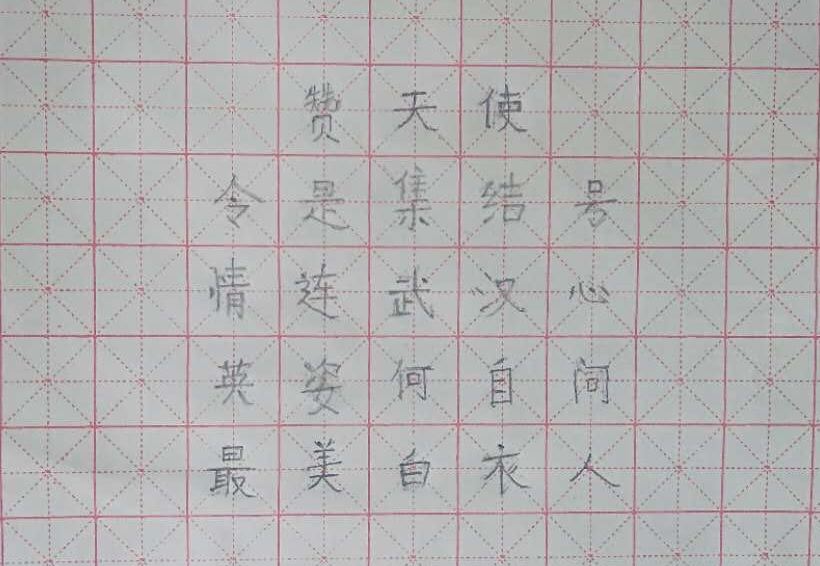 赞天使
令是集结号
情连武汉心
英姿何自问
最美白衣人